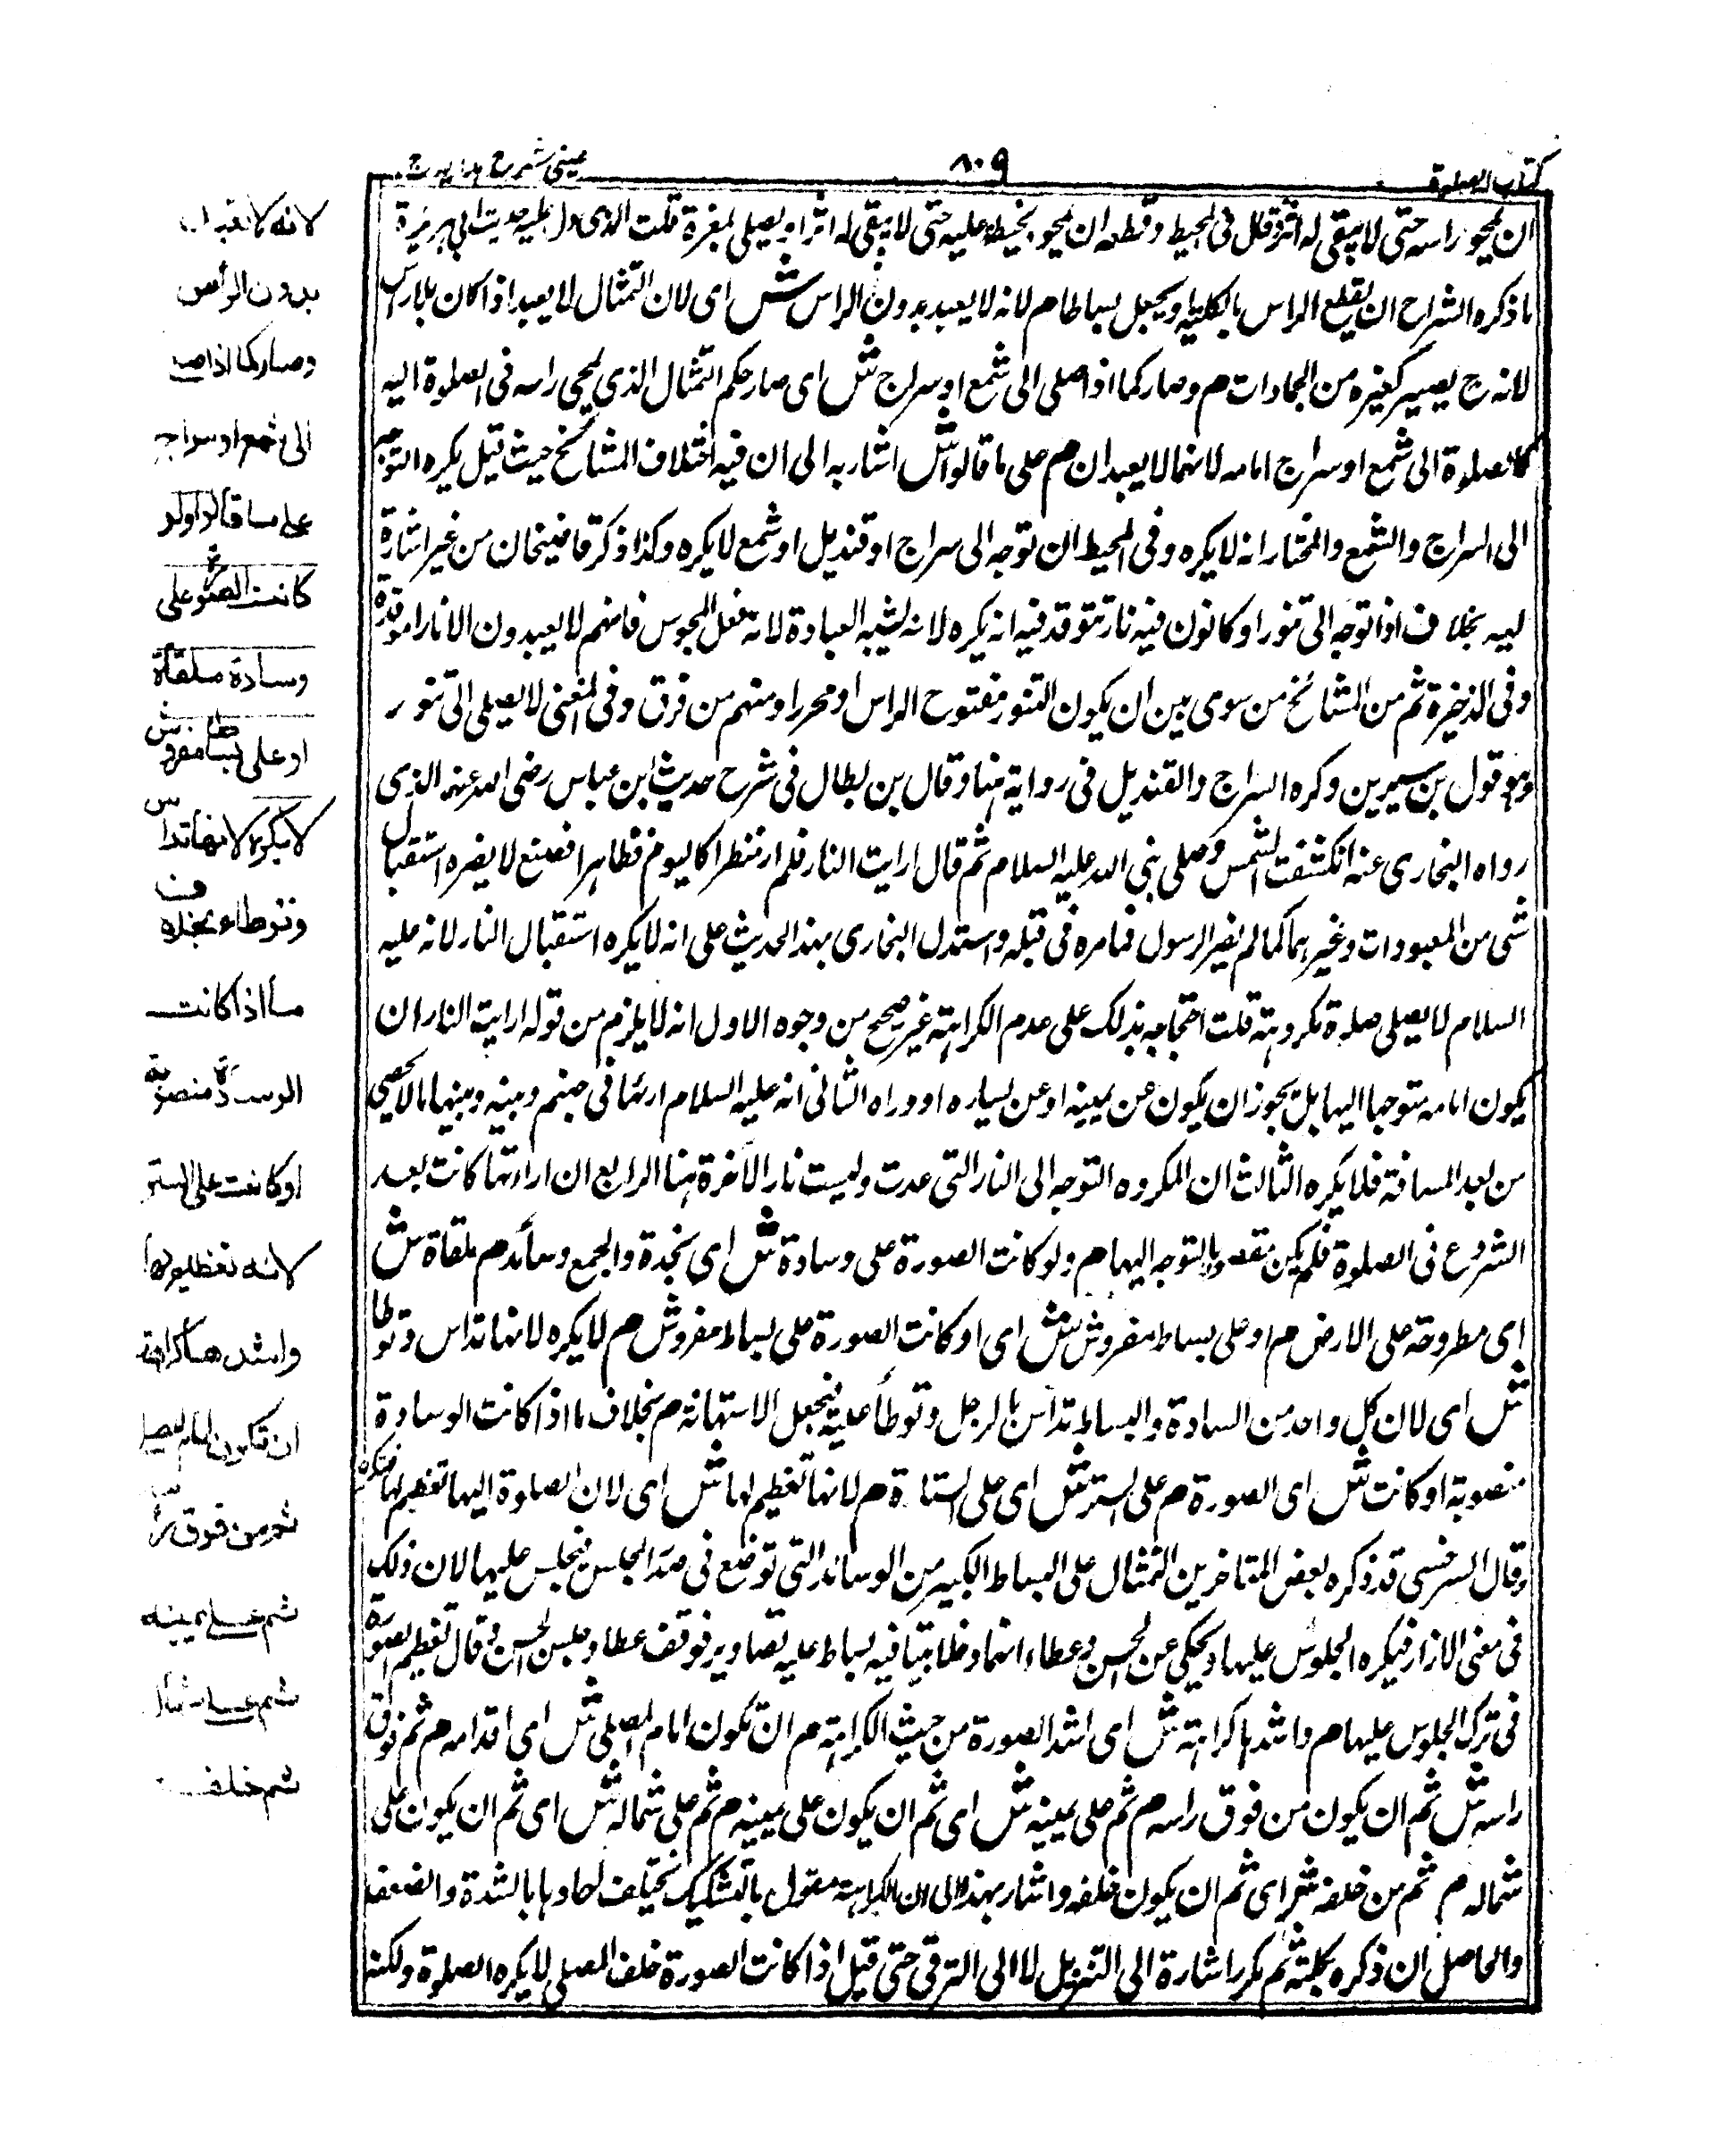 كتاب الصلوة
٨٠٩
عينى شرح هدايه ج
ان يمحو راسه حتى لا يبقى له اثر وقال فى المحيط وقطعه ان يمحو بخيط عليه حتى لا يبقى له اثر او يصلى لمغرة قلت الذى دل عليه حديث ابى هريرة
ما ذكره الشراح ان يقلع الراس بالكلية او يجعل بساطا م لانه لا يعبد بدون الراس ش اى لان التمثال لا يعبد اذا كان بلا راس
لانه ح يصير كغيره من الجمادات م وصار كما اذا صلى الى شمع او سراج ش اى صار حكم التمثال الذى يمحى راسه فى الصلوة اليه
كالصلوة الى شمع او سراج امامه لانهما لا يعبدان م على ما قالوا ش اشار به الى ان فيه اختلاف المشائخ حيث قيل يكره التوجه
الى السراج والشمع والمختار انه لا يكره وفى المحيط ان توجه الى سراج او قنديل او شمع لا يكره وكذا ذكر قاضيخان من غير اشارة
ليه بخلاف اذا توجه الى تنور او كانون فيه نار تتوقد فيه انه يكره لانه يشبه العبادة لانه فعل المجوس فانهم لا يعبدون الا نارا موقدة
وفى الذخيرة ثم من المشائخ من سوى بين ان يكون التنور مفتوح الراس او محررا ومنهم من فرق وفى المغنى لا يصلى الى تنور
وهو قول بن سيرين وكره السراج والقنديل فى رواية هنا وقال بن بطال فى شرح حديث ابن عباس رضى الله عنه الذى
رواه البخارى عنه انكشفت الشمس وصلى نبى الله عليه السلام ثم قال ارايت النار فلم ار منظرا كاليوم قط اهرا فصنع لا يضره استقبال
شى من المعبودات وغيرهما كما لم يضر الرسول فما مره فى قبله واستدل البخارى بهذا الحديث على انه لا يكره استقبال النار لانه عليه
السلام لا يصلى صلوة مكروهة قلت احتجاجه بذلك على عدم الكراهة غير صحيح من وجوه الاول انه لا يلزم من قوله ارايت النار ان
يكون امامه متوجها اليها بل يجوز ان يكون عن يمينه او عن يساره او وراه الثانى انه عليه السلام اريها فى جهنم وبينه وبينها ما لا يحصى
من بعد المسافة فلا يكره الثالث ان المكروه التوجه الى النار التى عدت وليست نار الآخرة هنا الرابع ان اراءتها كانت بعد
الشروع فى الصلوة فلم يكن مقصودا بالتوجه اليها م ولو كانت الصورة على وسادة ش اى نخدة والجمع وسائد م ملقاة ش
اى مطروحة على الارض م او على بساط مفروش ش اى او كانت الصورة على بساط مفروش م لا يكره لانها تداس وتوطا
ش اى لان كل واحد من السادة والبساط تداس بالرجل وتوطأ عليه فيحصل الاستهانة م بخلاف ما اذا كانت الوسادة
منصوبة او كانت ش اى الصورة م على الستر ش اى على الستارة م لانها تعظيم لها ش اى لان الصلوة اليها تعظيم لها فتكره
وقال السرخسى قد ذكره بعض المتاخرين التمثال على البساط الكبير من الوسائد التى توضع فى صدر المجلس فيجلس عليها لان ذلك
فى معنى الازار فيكره الجلوس عليها ويحكى عن الحسن وعطاء انهما دخلا بيتا فيه بساط عليه تصاوير فوقف عطاء وجلس الحسن وقال تعظيم الصورة
فى ترك الجلوس عليها م واشدها كراهة ش اى اشد الصورة من حيث الكراهة م ان تكون امام المصلى ش اى اقدامه م ثم فوق
راسه ش ثم ان يكون من فوق راسه م ثم على يمينه ش اى ثم ان يكون على يمينه م ثم على شماله ش اى ثم ان يكون على
شماله م ثم من خلفه ش اى ثم ان يكون خلفه واشار بهذا الى ان الكراهة مقول بالتشكيك تختلف احادها بالشدة والضعف
والحاصل ان ذكره بكلمة ثم مكررا اشارة الى التنزيل لا الى الترقى حتى قيل اذا كانت الصورة خلف المصلى لا يكره الصلوة ولكنه
لانه لا تعبد
بدون الرأس
وصار كما اذا صلى
الى شمع او سراج
على ما قالوا ولو
كانت الصورة على
وسادة ملقاة
او على بساط مفروش
لا يكره لانها تداس
وتوطاء بخلاف
ما اذا كانت
الوسادة منصوبة
او كانت على الستر
لانه تعظيم لها
واشدها كراهة
ان تكون امام المصلى
ثم من فوق راسه
ثم على يمينه
ثم على شماله
ثم خلفه